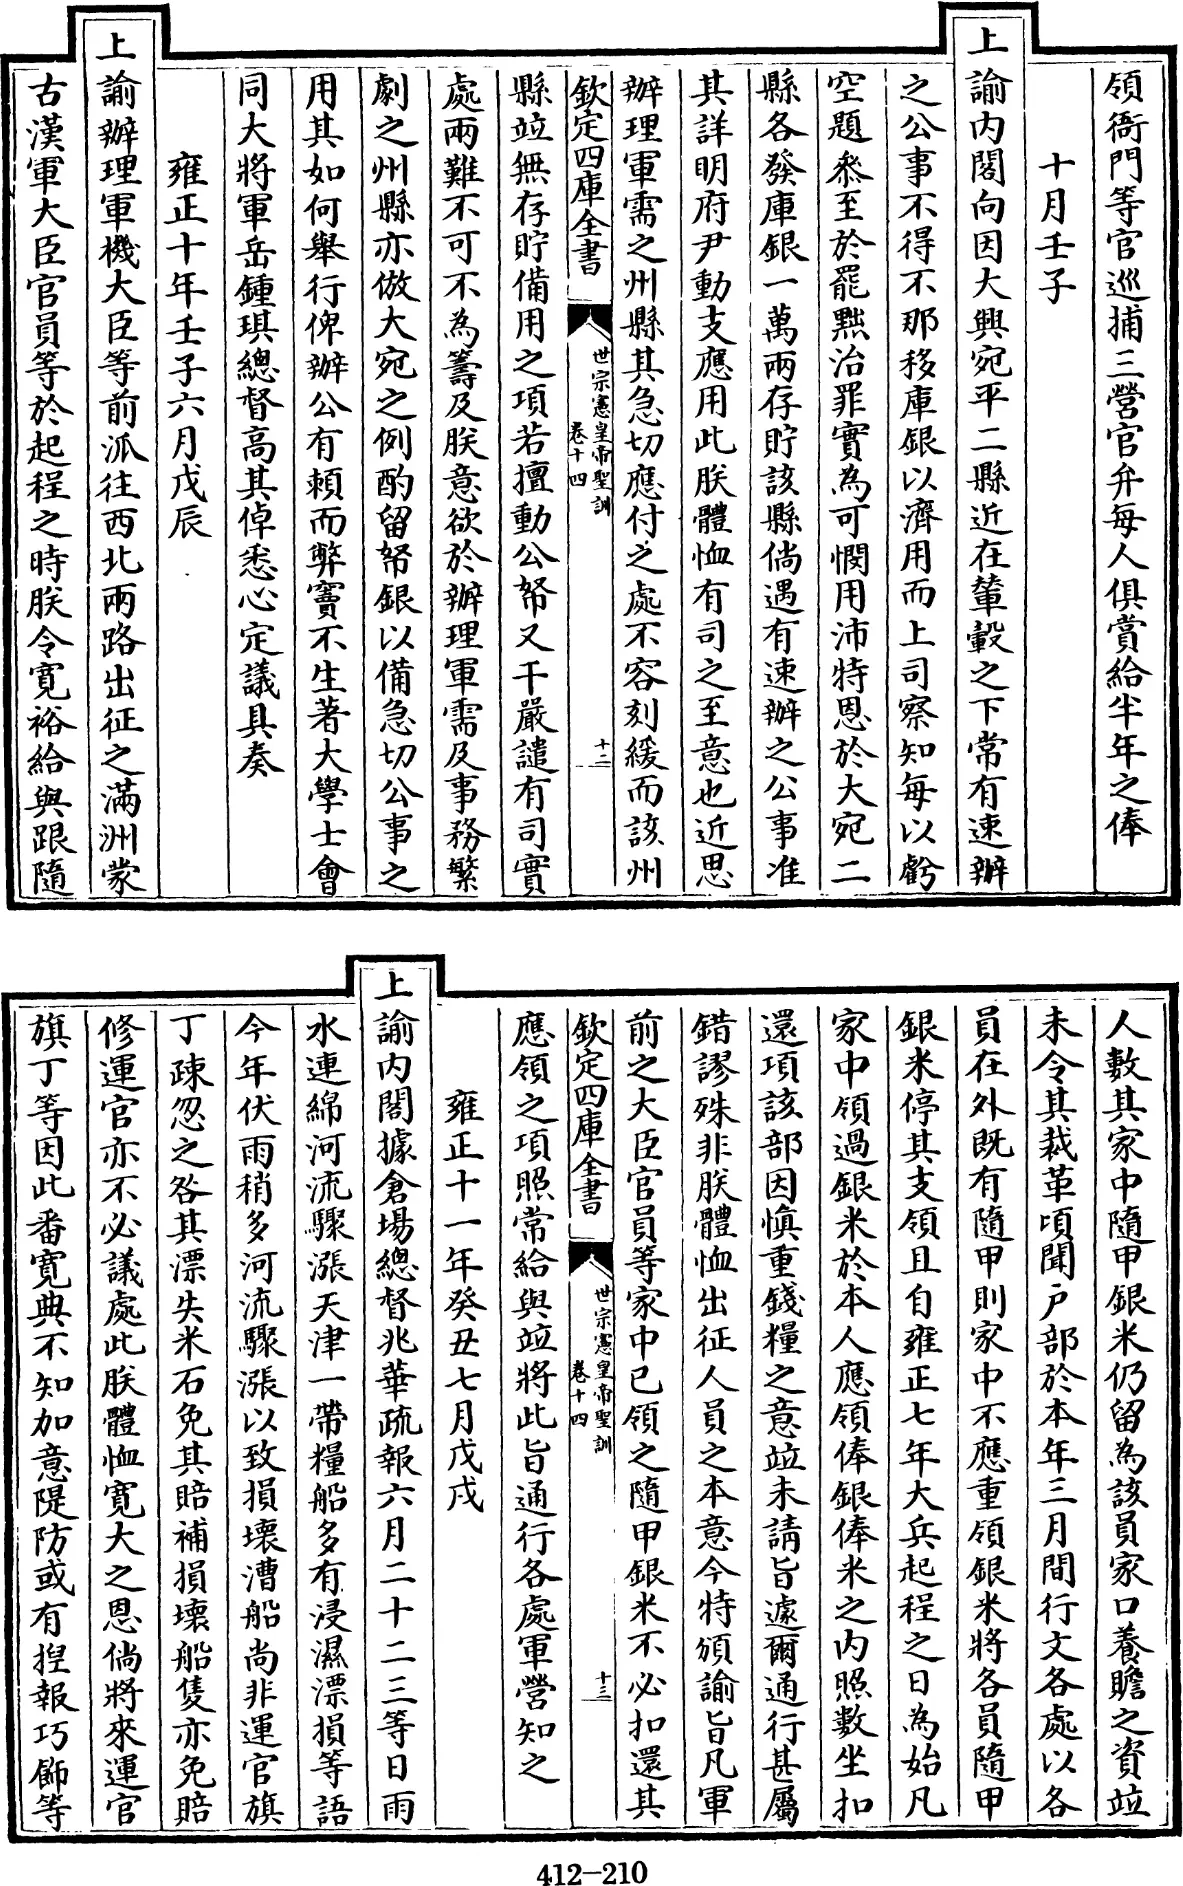 領衙門等官巡捕三營官弁每人俱賞給半年之俸
十月壬子
上諭内閣向因大興宛平二縣近在輦轂之下常有速辦
之公事不得不那移庫銀以濟用而上司察知每以虧
空題叅至於罷黜治罪實為可憫用沛特恩於大宛二
縣各發庫銀一萬兩存貯該縣倘遇有速辦之公事准
其詳明府尹動支應用此朕體恤有司之至意也近思
辦理軍需之州縣其急切應付之處不容刻緩而該州
欽定四庫全書
世宗憲皇帝聖訓
卷十四
十二
縣竝無存貯備用之項若擅動公帑又干嚴譴有司實
處兩難不可不為籌及朕意欲於辦理軍需及事務繁
劇之州縣亦倣大宛之例酌留帑銀以備急切公事之
用其如何舉行俾辦公有賴而弊竇不生著大學士會
同大將軍岳鍾琪總督高其倬悉心定議具奏
雍正十年壬子六月戊辰
上諭辦理軍機大臣等前派往西北兩路出征之滿洲蒙
古漢軍大臣官員等於起程之時朕令寛裕給與跟隨
人數其家中隨甲銀米仍留為該員家口養贍之資竝
未令其裁革頃聞户部於本年三月間行文各處以各
員在外既有隨甲則家中不應重領銀米將各員隨甲
銀米停其支領且自雍正七年大兵起程之日為始凡
家中領過銀米於本人應領俸銀俸米之内照數坐扣
還項該部因慎重錢糧之意竝未請旨遽爾通行甚屬
錯謬殊非朕體恤出征人員之本意今特頒諭旨凡軍
前之大臣官員等家中已領之隨甲銀米不必扣還其
欽定四庫全書
世宗憲皇帝聖訓
卷十四
十三
應領之項照常給與竝將此旨通行各處軍營知之
雍正十一年癸丑七月戊戌
上諭内閣據倉場總督兆華疏報六月二十二三等日雨
水連綿河流驟漲天津一帶糧船多有浸濕漂損等語
今年伏雨稍多河流驟漲以致損壞漕船尚非運官旗
丁疎忽之咎其漂失米石免其賠補損壞船隻亦免賠
修運官亦不必議處此朕體恤寛大之恩倘將來運官
旗丁等因此番寛典不知加意隄防或有揑報巧飾等
412-210